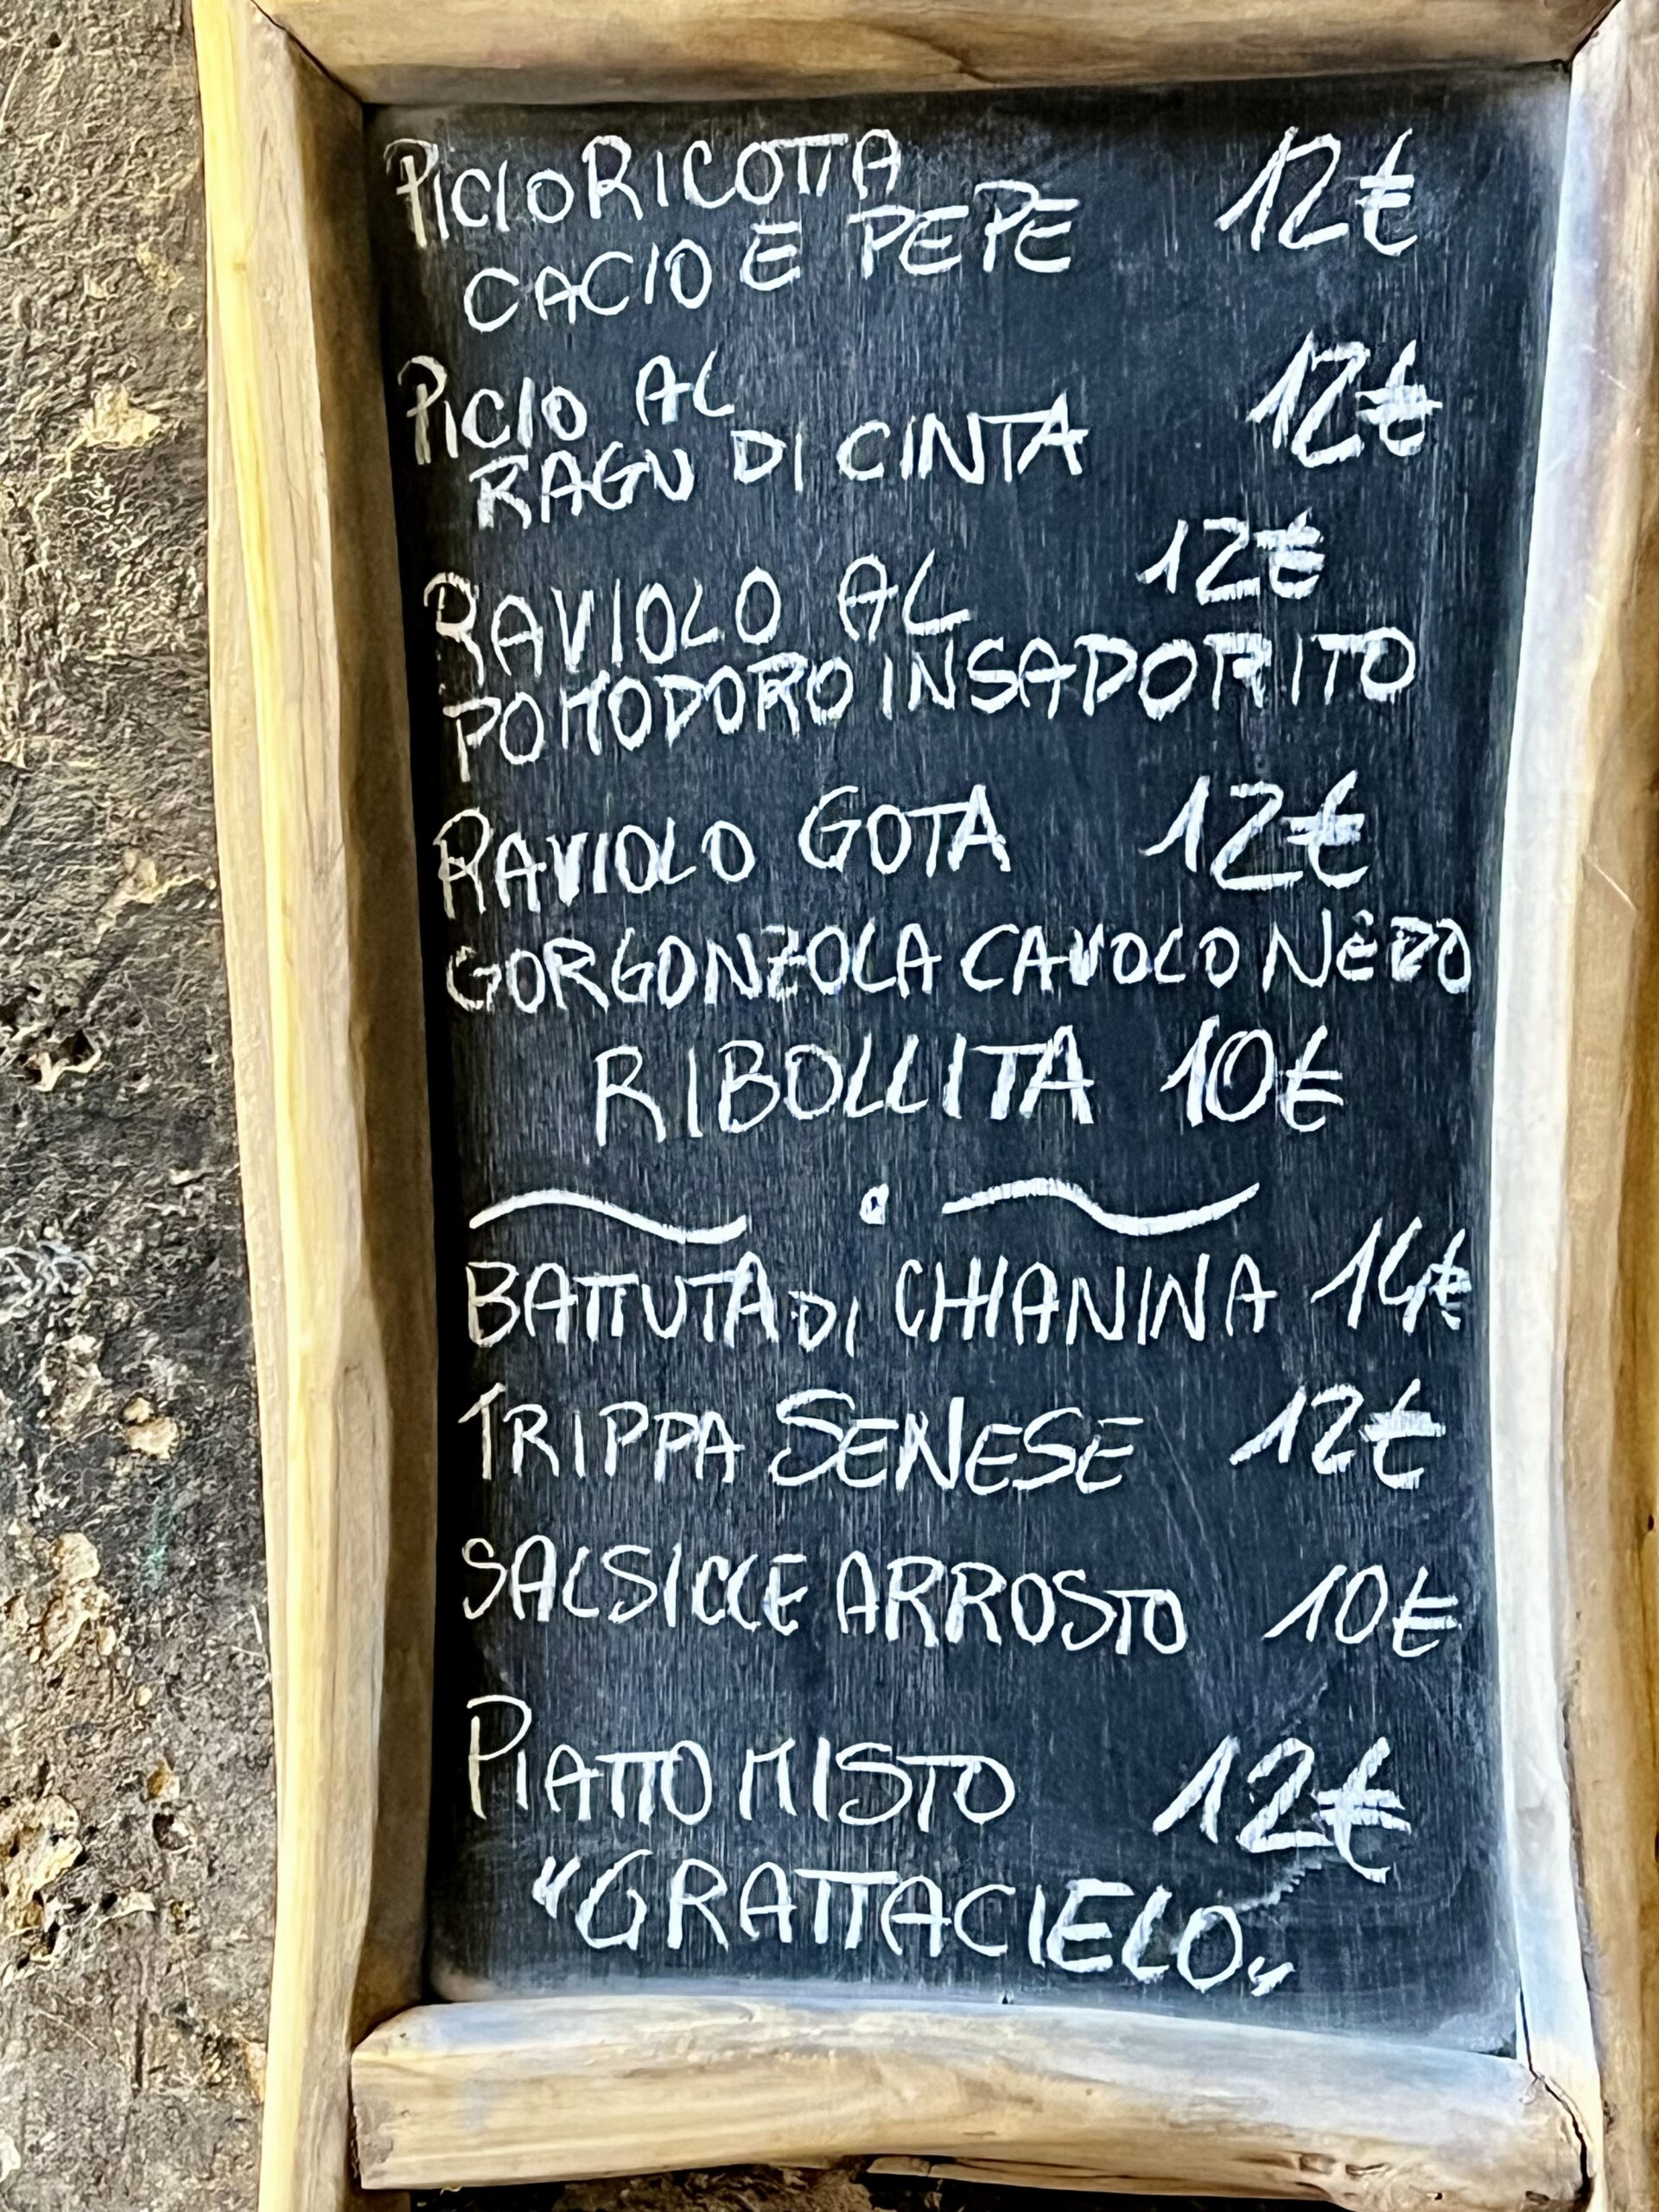 PICIO RICOTTA 12€
CACIO E PEPE
PICIO AL 12€
RAGU DI CINTA
RAVIOLO AL 12€
POMODORO INSADORITO
RAVIOLO GOTA 12€
GORGONZOLA CAVOLO NERO
RIBOLLITA 10€
BATTUTA DI CHIANINA 14€
TRIPPA SENESE 12€
SALSICCE ARROSTO 10€
PIATTO MISTO 12€
"GRATTACIELO"